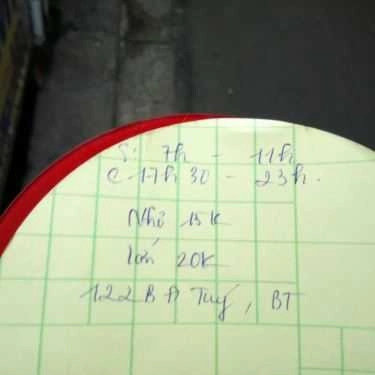 S: 7h - 11h
C 17h 30 - 23h.
Nhỏ 15K
lớn 20K
122B A Tuý, BT